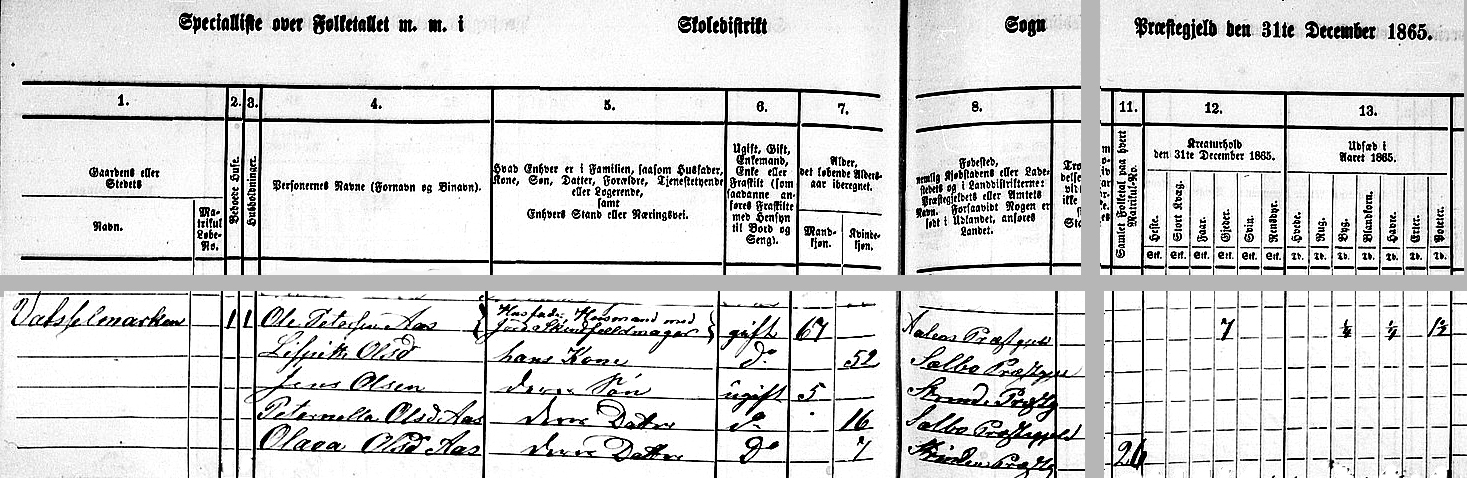 Specialliste over Folketallet m. m. i Skoledistrikt Sogn Præstegjeld den 31te December 1865.
1. 2. 3. 4. 5. 6. 7. 8. 11. 12. 13.
Gaardens eller Stedets
Navn.
Ma-
trikul
Løbe-
No.
Beboede Huse.
Husholdninger.
Personernes Navne (Fornavn og Binavn).
Hvad Enhver er i Familien, saasom Husfader,
Kone, Søn, Datter, Forældre, Tjenestetyende
eller Logerende,
samt
Enhvers Stand eller Næringsvei.
Ugift, Gift,
Enkemand,
Enke eller
Fraskilt (som
saadanne an-
føres Fraskilte
med Hensyn
til Bord og
Seng).
Alder,
det løbende Alders-
aar iberegnet.
Mand-
kjøn.
Kvinde-
kjøn.
Fødested,
nemlig Kjøbstadens eller Lade-
stedets og i Landdistrikterne:
Præstegjeldets eller Amtets
Navn. Forsaavidt Nogen er
født i Udlandet, anføres
Landet.
Samlet Folketal paa hvert
Matrikul-No.
Kreaturhold
den 31te December 1865.
Heste. Stort Kvæg. Faar. Gjeder. Svin. Rensdyr.
Stk. Stk. Stk. Stk. Stk. Stk.
Udsæd i
Aaret 1865.
Hvede. Rug. Byg. Blandkorn. Havre. Erter. Poteter.
Td. Td. Td. Td. Td. Td. Td.
1 1 Ole Petersen Aas Husfader Husmand med Jord gift 67 Præstegjeld 7 ¼ ½ 1½
Olsd hans Kone do 52 Sælbo Præstegjeld
Jens Olsen deres Søn ugift 5
Peternella Olsd. Aas deres Datter do 16 Sælbo Præstegjeld
Olava Olsd Aas deres Datter Do 7 26